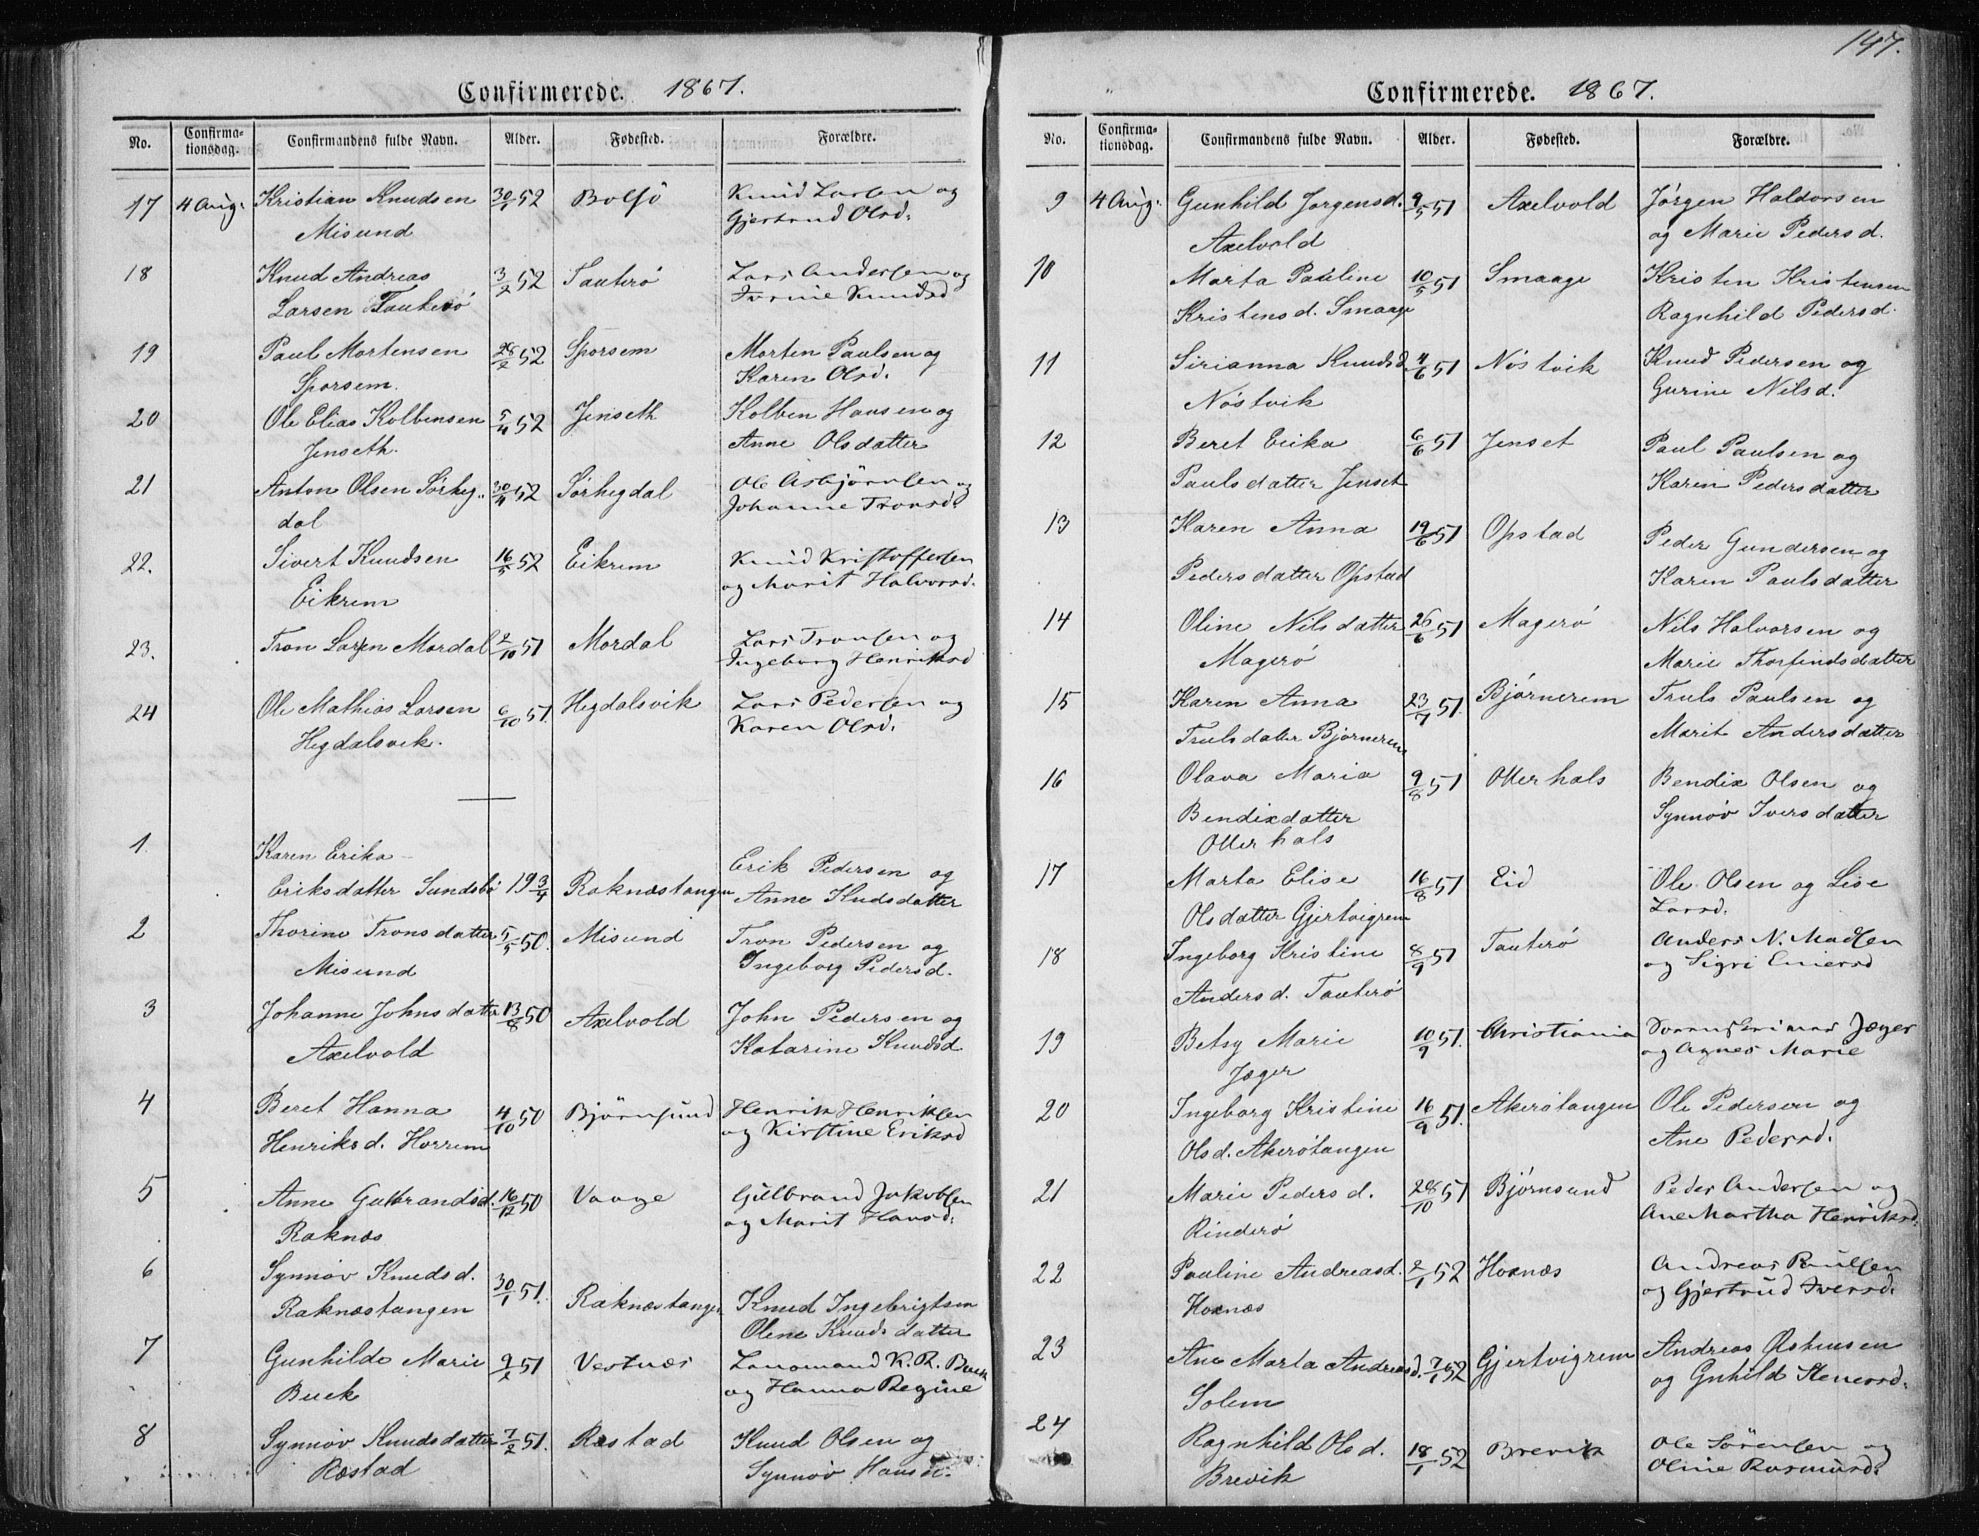 Confirmerede. 1867.
No. Confirma-tionsdag. Confirmandens fulde Navn. Alder. Fødested. Forældre.
17 4 Aug. Kristian Knudsen 30/1 52 Bolsö Knud Larsen og
Misund Gjertrud Olsd.
18 Knud Andreas 3/2 52 Tauterö Lars Andersen og
Larsen Tauterö Ivrine Knudsd
19 Paul Mortensen 28/2 52 Sporsem Morten Paulsen og
Sporsem. Karen Olsd.
20 Ole Elias Kolbensen 5/4 52 Jenseth Kolben Hansen og
Jenseth. Anne Olsdatter
21 Anton Olsen Sörheg- 30/4 52 Sörhegdal Ole Asbjörnsen og
dal Johanne Tronsd.
22. Sivert Knudsen 16/5 52 Eikrem Knud Kristoffersen
Eikrem og Marit Halvorsd.
23. Tron Larsen Mordal 2/10 51 Mordal Lars Tronsen og
Ingeborg Henriksd
24 Ole Mathias Larsen 6/10 51 Hegdalsvik Lars Pedersen og
Hegdalsvik. Karen Olsd.
1 Karen Erika Erik Pedersen og
Eriksdatter Sundsbö 19 3/4 Raknæstangen Anne Knudsdatter
2 Thorine Tronsdatter 5/5 50. Misund Tron Pedersen og
Misund Ingeborg Pedersd.
3 Johanne Johnsdatter 13/8 50 Axelvold John Pedersen og
Axelvold Katarine Knudsd
4 Beret Hanna 4/10 50 Björnsund Henrik Henriksen
Henriksd. Horrem og Kirstine Eriksd
5 Anne Gulbrandsd. 16/12 50 Vaage Gulbrand Jakobsen
Raknæs og Marit Hansd.
6 Synnöv Knudsd. 30/1 51. Raknæstangen Knud Ingebrigtsen
Raknæstangen Olene Knudsdatter
7 Gunhilde Marie 9/2 51 Vestnæs Lensmand K. R. Buck
Buck og Hanna Regine
8 Synnöv Knudsdatter 7/2 51. Ræstad Knud Olsen og
Ræstad Synnöv Hansd.
147.
Confirmerede. 1867.
No. Confirma-tionsdag. Confirmandens fulde Navn. Alder. Fødested. Forældre.
9 4 Aug. Gunhild Jørgensd. 9/5 51 Axelvold Jörgen Haldorsen
Axelvold og Marie Pedersd.
10 Marta Pauline 10/5 51 Smaage Kristen Kristensen
Kristensd. Smaage Ragnhild Pedersd.
11 Sirianna Knudsd. 4/6 51 Nöstvik Knud Pedersen og
Nöstvik Gurine Nilsd.
12 Beret Erika 6/6 51 Jenset Paul Paulsen og
Paulsdatter Jenset Karen Pedersdatter
13 Karen Anna 19/6 51 Opstad Peder Gundersen og
Pedersdatter Opstad Karen Paulsdatter
14 Oline Nilsdatter 26/6 51 Magerö Nils Halvorsen og
Magerö Marie Thorfindsdatter
15 Karen Anna 23/7 51. Björnerem Truls Paulsen og
Trulsdatter Björnerem Marit Andersdatter
16 Olava Maria 9/8 51 Otterhals Bendix Olsen og
Bendixdatter Synnöv Iversdatter
Otterhals
17 Marta Elise 16/8 51 Eid Ole Olsen og Lise
Olsdatter Gjertvigrem Larsd.
18 Ingeborg Kristine 8/9 51 Tauterö Anders N. Madsen
Andersd. Tauterö og Sigri Einersd
19 Betsy Marie 10/9 51. Christiania Jæger
Jæger og Agnes Marie
20 Ingeborg Kristine 16/9 51. Akerötangen Ole Pedersen og
Olsd. Akerötangen Ane Pedersd.
21 Marie Pedersd. 28/10 51 Björnsund Peder Andersen og
Rinderö Ane Martha Henriksd.
22 Pauline Andreasd. 2/1 52 Hoxnæs Andreas Paulsen
Hoxnæs og Gjertrud Iversd.
23 Ane Marta Andreasd. 7/1 52 Gjertvigrem Andreas Østensen
Solem og Gnhild Stenersd.
24 Ragnhild Olsd. 18/1 52 Brevik Ole Sörensen og
Brevik Oline Rasmusd.